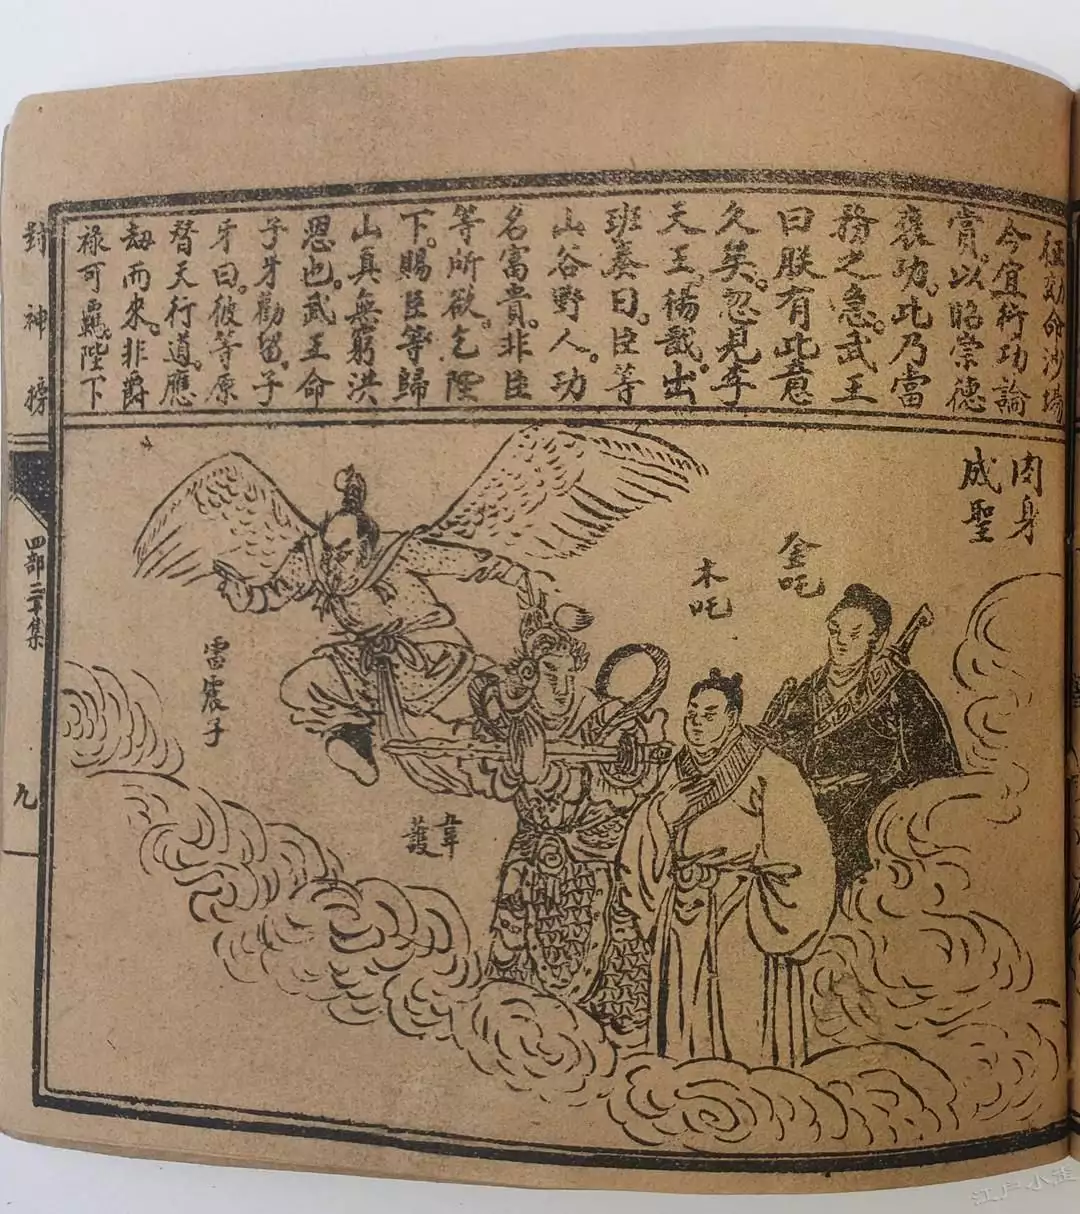 征効命沙場
今宜行功論
賞。以昭崇德
襃功。此乃當
務之急。武王
曰朕有此意
久矣。忽見李
天王。楊戩。出
班奏曰。臣等
山谷野人。功
名富貴。非臣
等所欲。乞陛
下。賜臣等歸
山真無窮洪
恩也。武王命
子牙勸留。子
牙曰。彼等原
替天行道。應
劫而來。非爵
祿可羈。陛下
肉身
成聖
金吒
木吒
韋護
雷震子
封神榜
四部二十集
九
江户小渔